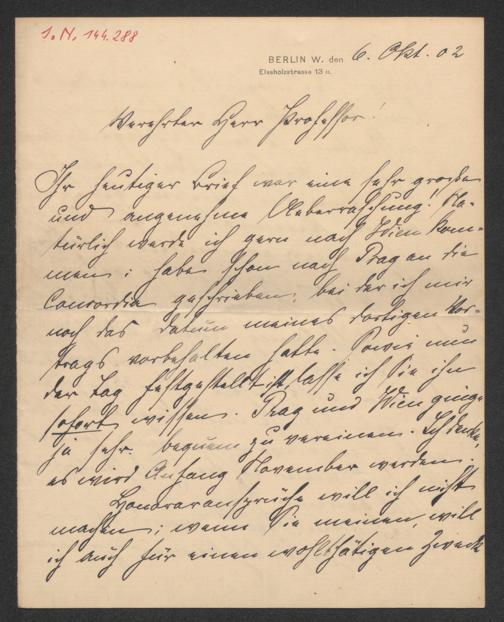 I.N. 144.288
BERLIN W. den 6. Okt. 02
Elssholzstrasse 13 II.
Verehrter Herr Professor!
Ihr heutiger Brief war eine sehr große
und angenehme Ueberraschung! Na-
türlich werde ich gern nach Wien kom-
men; habe schon nach Prag an die
Concordia geschrieben, bei der ich mir
noch das Datum meines dortigen Vor-
trags vorbehalten hatte. Sowie nun
der Tag festgestellt ist, lasse ich Sie ihn
sofort wissen. Prag und Wien ginge
ja sehr bequem zu vereinen. Ich denke,
es wird Anfang November werden.
Honoraransprüche will ich nicht
machen; wenn Sie meinen, will
ich auch für einen wohlthätigen Zweck